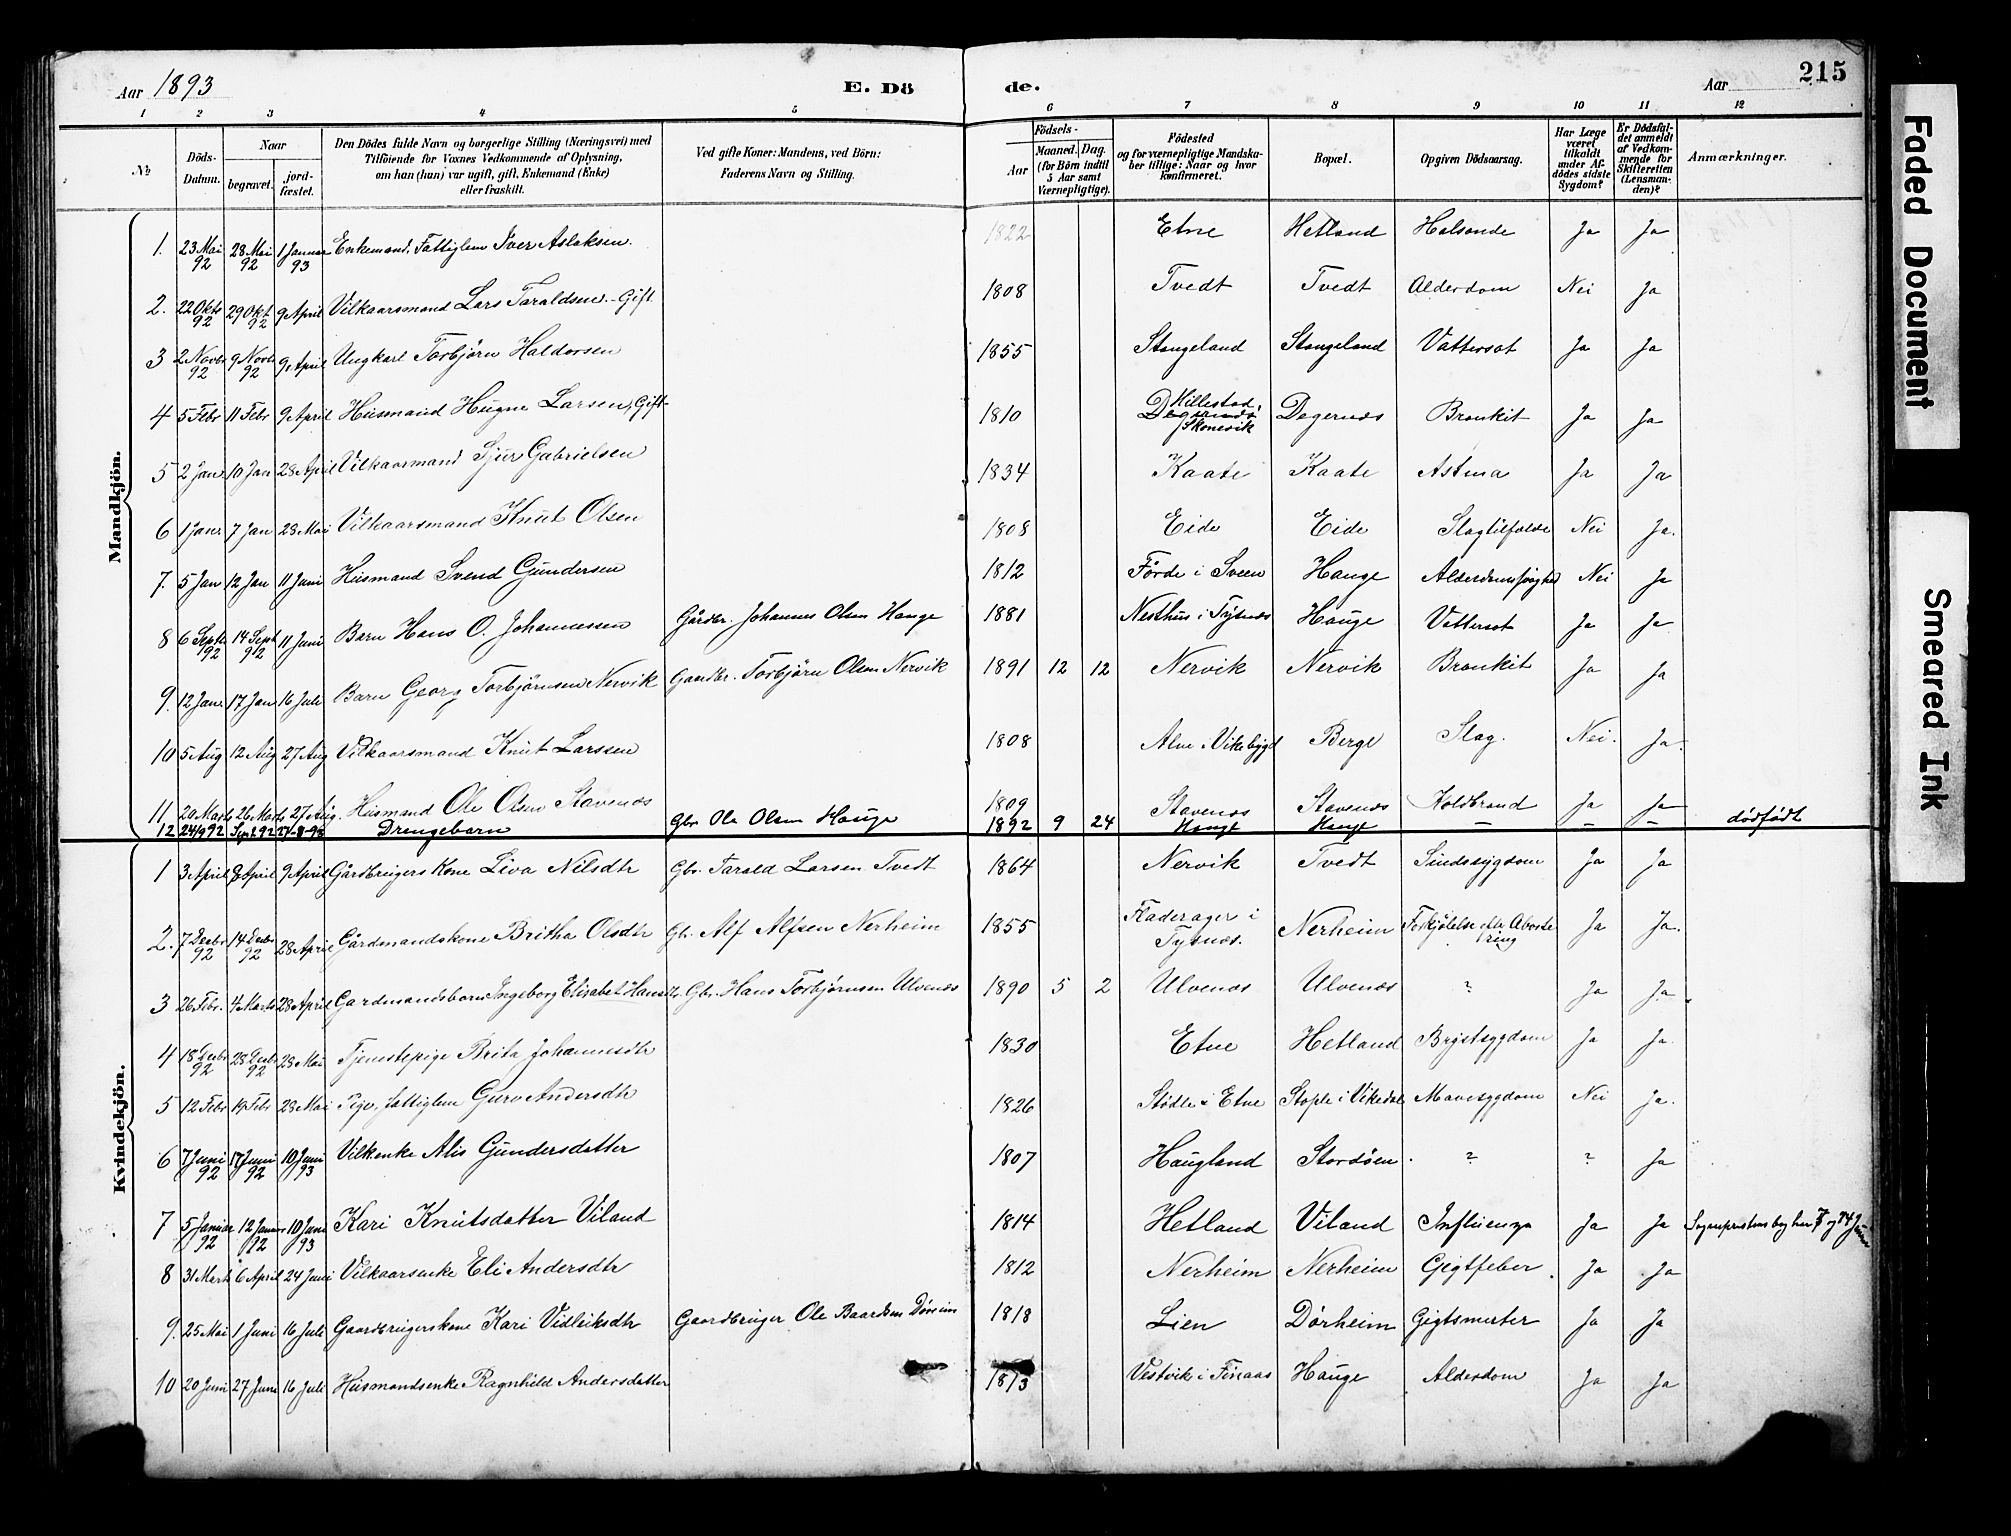 Aar 1893 E. Döde. Aar 215
1 2 3 4 5 6 7 8 9 10 11 12
No
Döds-Datum.
Naar
begravet.
jord-fæstet.
Den Dödes fulde Navn og borgerlige Stilling (Næringsvei) med
Tilföiende for Voxnes Vedkommende af Oplysning,
om han (hun) var ugift, gift, Enkemand (Enke)
eller fraskilt.
Ved gifte Koner: Mandens, ved Börn:
Faderens Navn og Stilling.
Födsels-
Aar
Maaned. Dag.
(for Börn indtil
5 Aar samt
Værnepligtige).
Födested
og for værnepligtige Mandska-
ber tillige: Naar og hvor
konfirmeret.
Bopæl.
Opgiven Dödsaarsag.
Har Læge
været
tilkaldt
under Af-
dödes sidste
Sygdom?
Er Dödsfal-
det anmeldt
af Vedkom-
mende for
Skifteretten
(Lensman-
den)?
Anmærkninger.
Mandkjön.
1. 23 Mai 92 28 Mai 92 1 Januar 93 Enkemand, Fattiglem Iver Aslaksen. 1822 Etne Hetland Halsonde Ja Ja
2. 22 Oktb 92 29 Okt 92 9 April Vilkaarsmand Lars Taraldsen.-Gift 1808 Tvedt Tvedt Alderdom Nei Ja
3 2 Novbr 92 9 Novbr 92 9 April Ungkarl Torbjørn Haldorsen 1855 Stangeland Stangeland Vattersot Ja Ja
4 5 Febr 11 Febr 9 April Husmand Hugne Larsen, Gift- 1810 Killestad, Skonevik Degernæs Bronkit Ja Ja
5 2 Jan 10 Jan 28 April Vilkaarmand Sjur Gabrielsen 1834 Kaate Kaate Astma Ja Ja
6 1 Janr. 7 Jan 28 Mai Vilkaarsmand Knut Olsen 1808 Eide Eide Slagtilfælde Nei Ja.
7. 5 Jan 12 Jan 11 Juni Husmand Svend Gundersen 1812 Förde i Sveen Hauge Alderdomssvaghed Nei Ja
8 6 Septbr 92 14 Sept 92 11 Juni Barn Hans O. Johannessen Gårdbr. Johannes Olsen Hauge 1881 Nesthus i Tysnæs Hauge Vattersot Ja Ja
9. 12 Janr 17 Jan 16 Juli Barn Georg Torbjørnsen Nervik Gaardbr. Torbjørn Olsen Nervik 1891 12 12 Nervik Nervik Bronkit Ja Ja
10 5 Aug 12 Aug 27 Aug Vilkaarsmand Knut Larssen 1808 Alne i Vikebygd Berge Slag. Nei. Ja.
11 20 Marts 26 Marts 27 Aug. Husmand Ole Olsen Stavenæs 1809 Stavenæs Stavenæs Koldbrand Ja Ja
12 24/9 92 Sept 92 27-8-93 Drengebarn Gbr Ole Olsen Hauge 1892 9 24 Hauge Hauge – – – dødfødt
Kvindekjön.
1 3 April 8 April 9 April Gårdbrugers Kone Liva Nilsdtr Gbr. Tarald Larsen Tvedt 1864 Nervik Tvedt Sindssygdom Ja Ja
2. 7 Decbr 92 14 Decbr 92 28 April Gårdmandskone Britha Olsdtr Gbr. Alf Alfsen Nerheim 1855 Fladerager i Tysnæs. Nerheim Forkjølelse efter Abortering Ja Ja.
3 26 Febr. 4 Marts 28 April Gardmandsbarn Ingeborg Elisabet Hansdtr. Gbr. Hans Torbjørnsen Ulvenæs 1890 5 2 Ulvenæs Ulvenæs ? Ja Ja
4 18 Decbr 92 28 Decbr 92 28 Mai Tjenestepige Brita Johannesdtr 1830 Etne Hetland Brystsygdom Ja Ja.
5 12 Febr 19 Febr 28 Mai Pige, fattiglem Guro Andersdtr 1826 Stødle i Etne Stople i Vikedal Mavesygdom Nei Ja.
6 7 Juni 92 17 Juni 92 10 Juni 93 Vilk.enke Alis Gundersdatter 1807 Haugland Stordøen. ? ? Ja
7 5 Januar 92 12 Januar 92 10 Juni 93 Kari Knutsdatter Viland 1814 Hetland Viland Influenza Ja Ja Sognepræstens bog har 7 og 14 Januar
8 31 Marts 6 April 24 Juni Vilkaarsenke Eli Andersdtr 1812 Nerheim Nerheim Gigtfeber. Ja Ja
9. 25 Mai 1 Juni 16 Juli Gaardbrugerskone Kari Vidleiksdtr Gaardbruger Ole Baardsen Dørheim 1818 Lien Dørheim Gigtsmerter Ja Ja
10 20 Juni 27 Juni 16 Juli Husmandsenke Ragnhild Andersdatter 1813 Vestvik i Finaas Hauge Alderdom Ja Ja
Faded Document
Smeared Ink